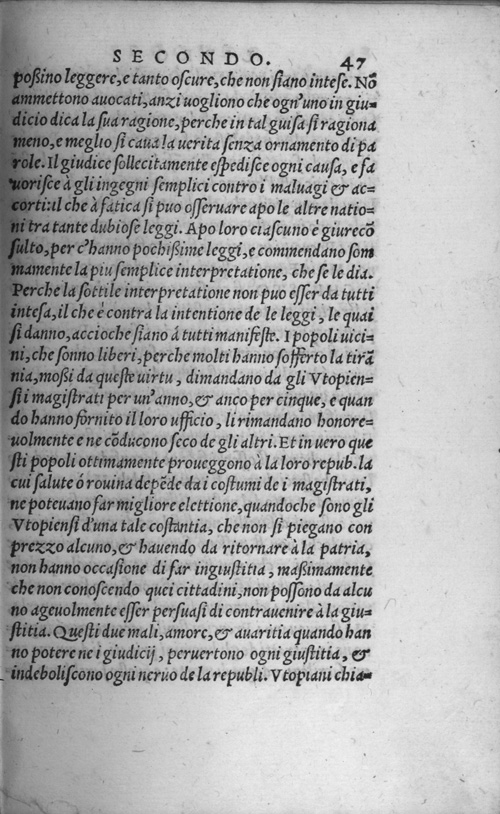 SECONDO. 47
poßino leggere, e tanto oſcure, che non ſiano inteſe. Nō
ammettono auocati, anzi uogliono che ogn'uno in giu=
dicio dica la ſua ragione, perche in tal guiſa ſi ragiona
meno, e meglio ſi caua la uerita ſenza ornamento di pa
role. Il giudice ſollecitamente eſpediſce ogni cauſa, e fa
uoriſce à gli ingegni ſemplici contro i maluagi & ac=
corti:il che à fatica ſi puo oſſeruare apo le altre natio=
ni tra tante dubioſe leggi. Apo loro ciaſcuno è giurecō
ſulto, per c'hanno pochißime leggi, e commendano ſom
mamente la piu ſemplice interpretatione, che ſe le dia.
Perche la ſottile interpretatione non puo eſſer da tutti
inteſa, il che è contra la intentione de le leggi, le quai
ſi danno, accioche ſiano á tutti manifeſte. I popoli uici=
ni, che ſonno liberi, perche molti hanno ſofferto la tirā
nia, moßi da queſte uirtu, dimandano da gli Vtopien=
ſi i magiſtrati per un'anno, & anco per cinque, e quan
do hanno fornito il loro ufficio, li rimandano honore=
uolmente e ne cōducono ſeco de gli altri. Et in uero que
ſti popoli ottimamente proueggono à la loro repub. la
cui ſalute ó rouina depēde da i coſtumi de i magiſtrati,
ne poteuano far migliore elettione, quandoche ſono gli
Vtopienſi d'una tale coſtantia, che non ſi piegano con
prezzo alcuno, & hauendo da ritornare à la patria,
non hanno occaſione di far ingiuſtitia, maßimamente
che non conoſcendo quei cittadini, non poſſono da alcu
no ageuolmente eſſer perſuaſi di contrauenire à la giu=
ſtitia. Queſti due mali, amore, & auaritia quando han
no potere ne i giudicij, peruertono ogni giuſtitia, &
indeboliſcono ogni neruo de la republi. Vtopiani chia=